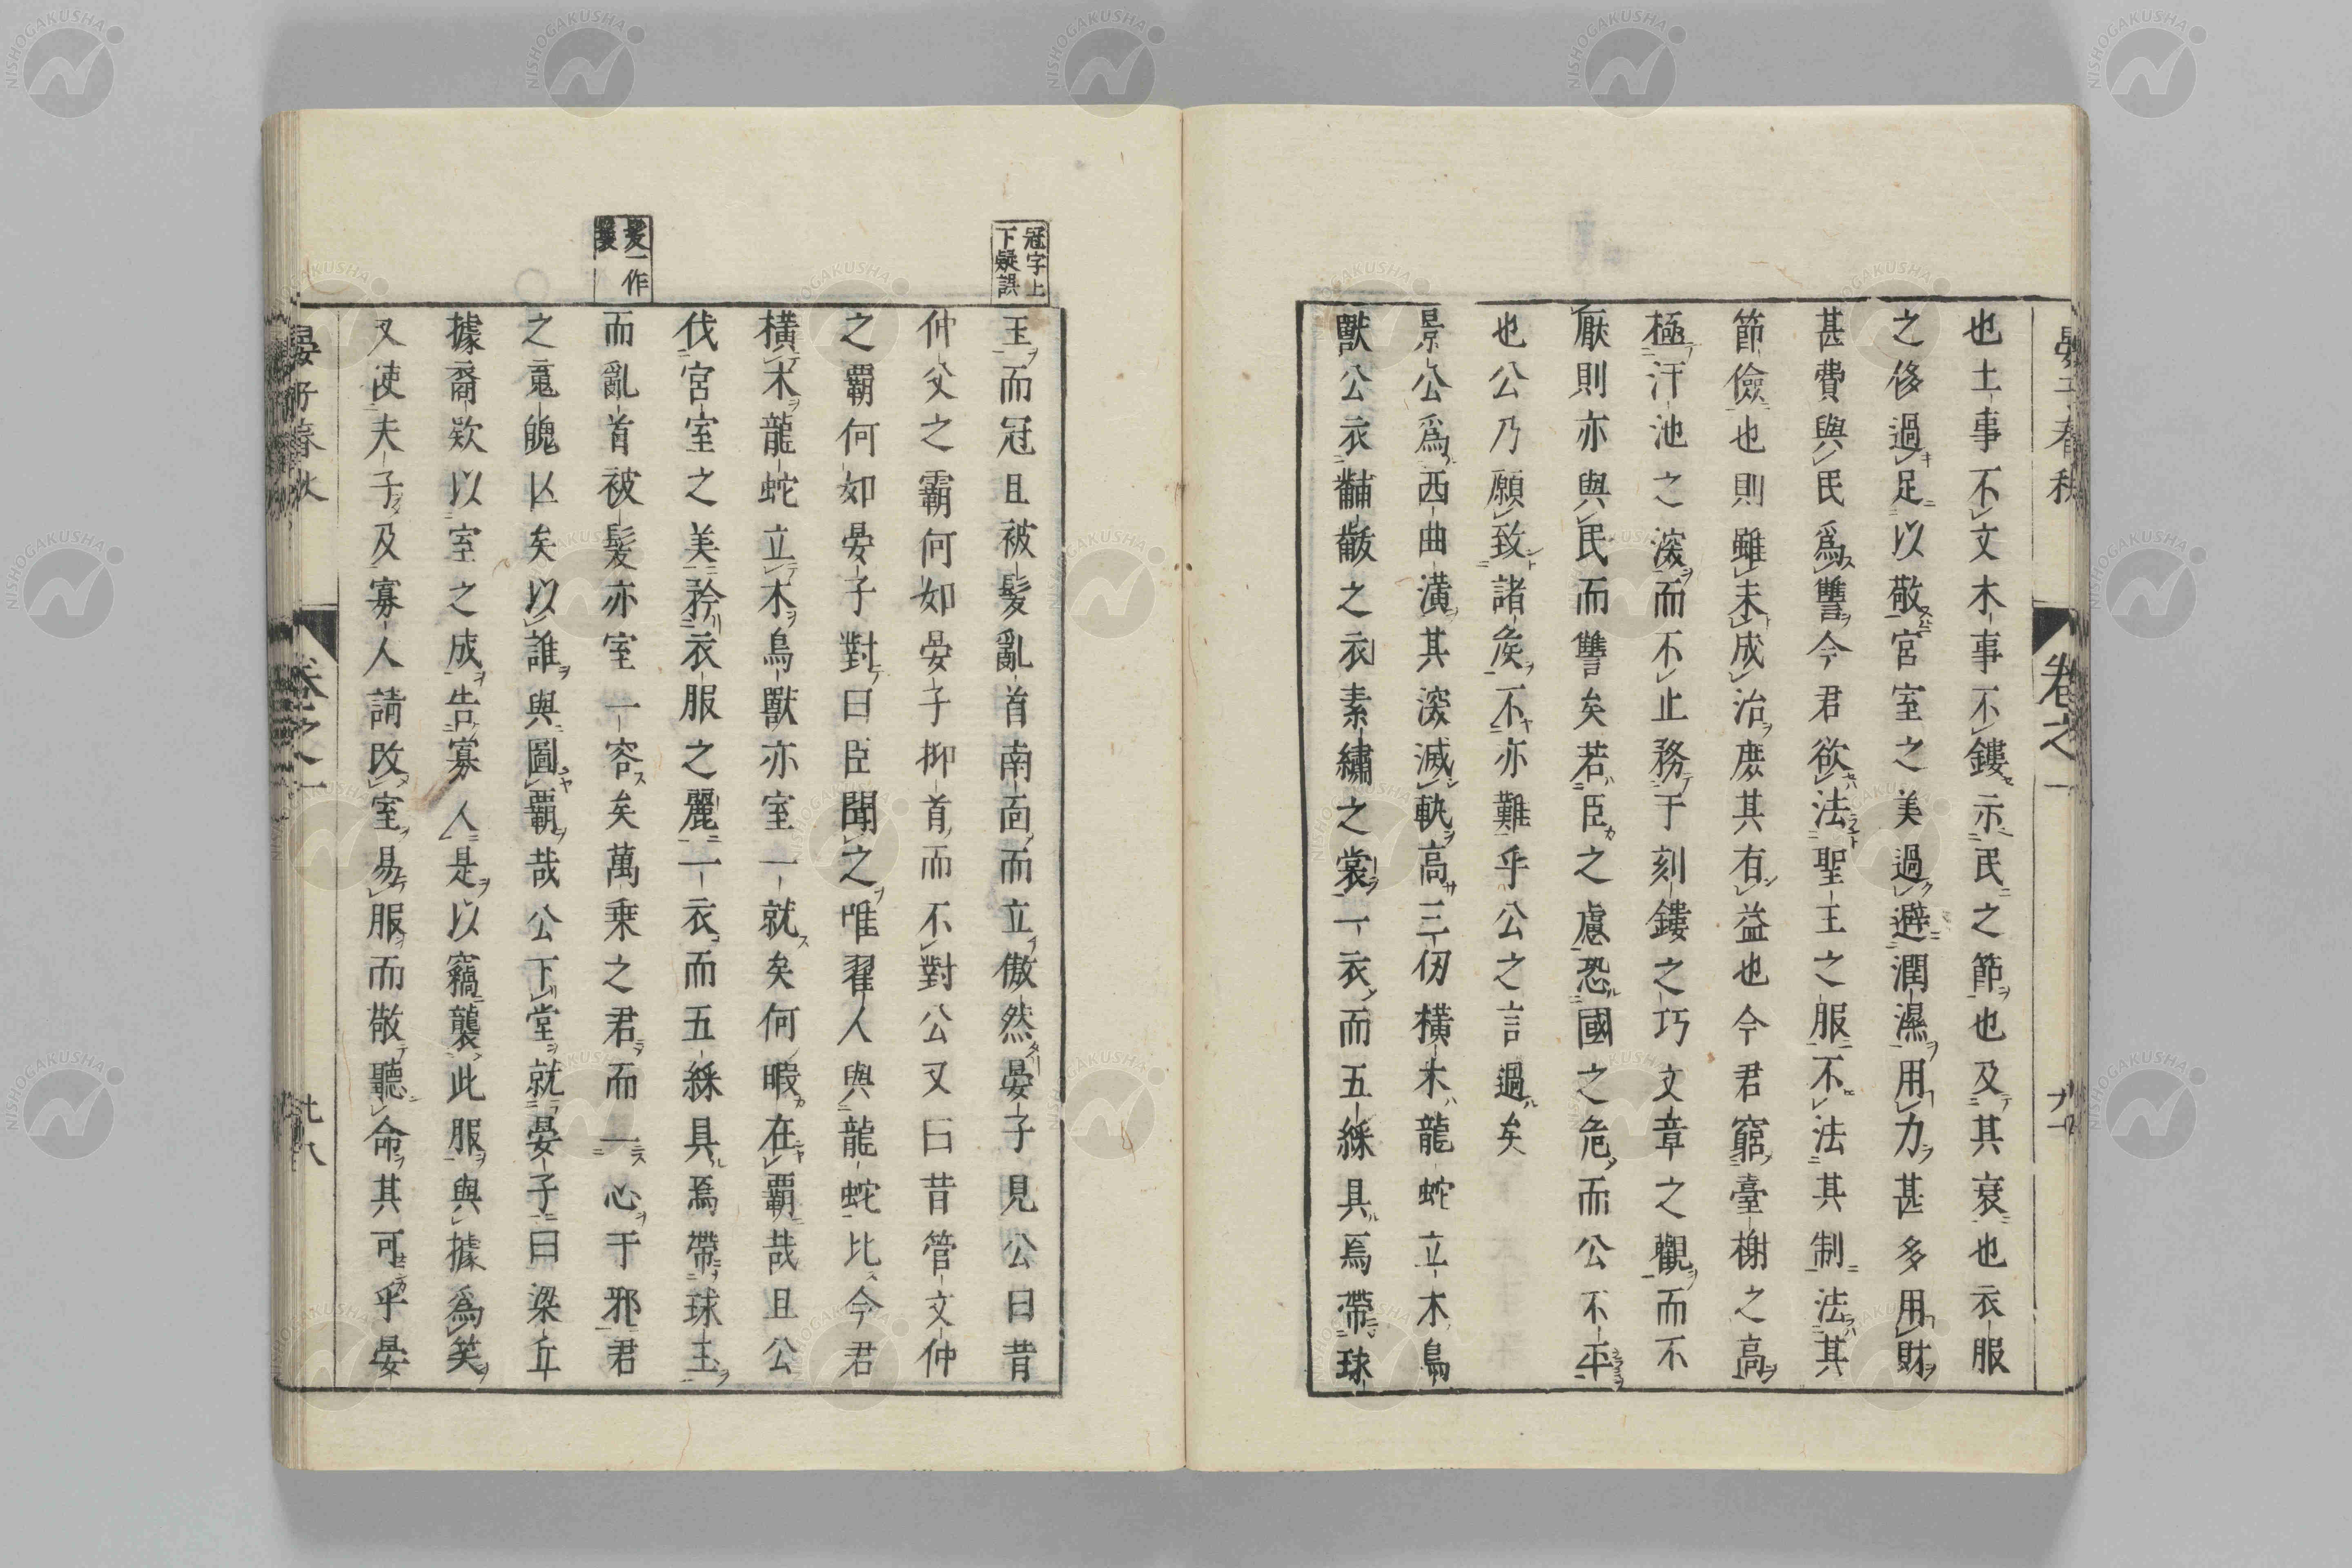 晏子春秋 卷之一
也土事不文木事不鏤示民之節也及其衰也衣服
之侈過足以敬宮室之美過避潤濕用力甚多用財
甚費與民爲讐今君欲法聖王之服不法其制法其
節儉也則雖未成治庶其有益也今君窮臺榭之高
極汙池之深而不止務于刻鏤之巧文章之觀而不
厭則亦與民而讐矣若臣之慮恐國之危而公不平
也公乃願致諸侯不亦難乎公之言過矣
景公爲西曲潢其深滅軌高三仞橫木龍蛇立木鳥
獸公衣黼黻之衣素繡之裳一衣而五綵具焉帶球
冠字上
下疑誤
玉而冠且被髮亂首南面而立傲然晏子見公曰昔
仲父之霸何如晏子抑首而不對公又曰昔管文仲
之霸何如晏子對曰臣聞之唯翟人與龍蛇比今君
橫木龍蛇立木鳥獸亦室一就矣何暇在霸哉且公
伐宮室之美矜衣服之麗一衣而五綵具焉帶球玉
髮一作
而亂首被髮亦室一容矣萬乘之君而一心于邪君
之䰟魄亾矣以誰與圖霸哉公下堂就晏子曰梁丘
據裔款以室之成告寡人是以竊襲此服與據爲笑
又使夫子及寡人請改室易服而敬聽命其可乎晏
晏子春秋 卷之一